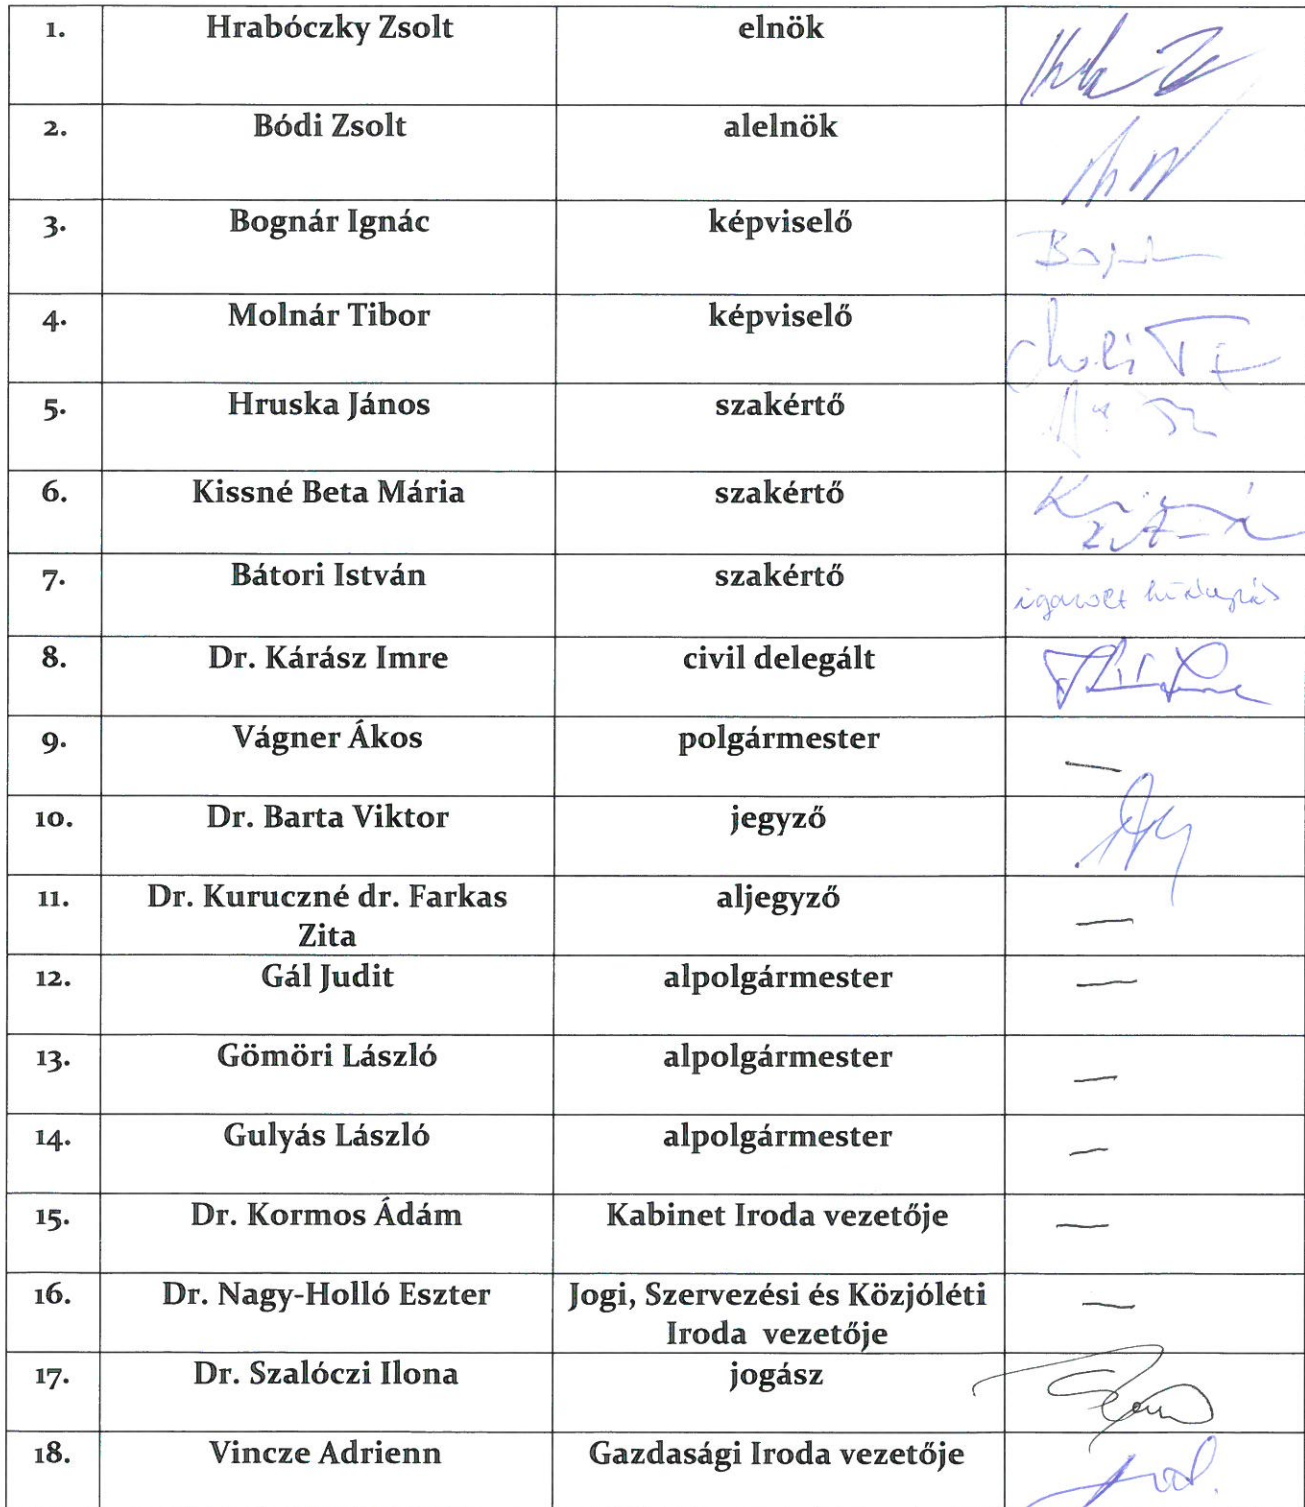 1. Hrabóczky Zsolt elnök
2. Bódi Zsolt alelnök
3. Bognár Ignác képviselő
4. Molnár Tibor képviselő
5. Hruska János szakértő
6. Kissné Beta Mária szakértő
7. Bátori István szakértő igazolt hiányzás
8. Dr. Kárász Imre civil delegált
9. Vágner Ákos polgármester —
10. Dr. Barta Viktor jegyző
11. Dr. Kuruczné dr. Farkas aljegyző —
Zita
12. Gál Judit alpolgármester —
13. Gömöri László alpolgármester —
14. Gulyás László alpolgármester —
15. Dr. Kormos Ádám Kabinet Iroda vezetője —
16. Dr. Nagy-Holló Eszter Jogi, Szervezési és Közjóléti —
Iroda vezetője
17. Dr. Szalóczi Ilona jogász
18. Vincze Adrienn Gazdasági Iroda vezetője